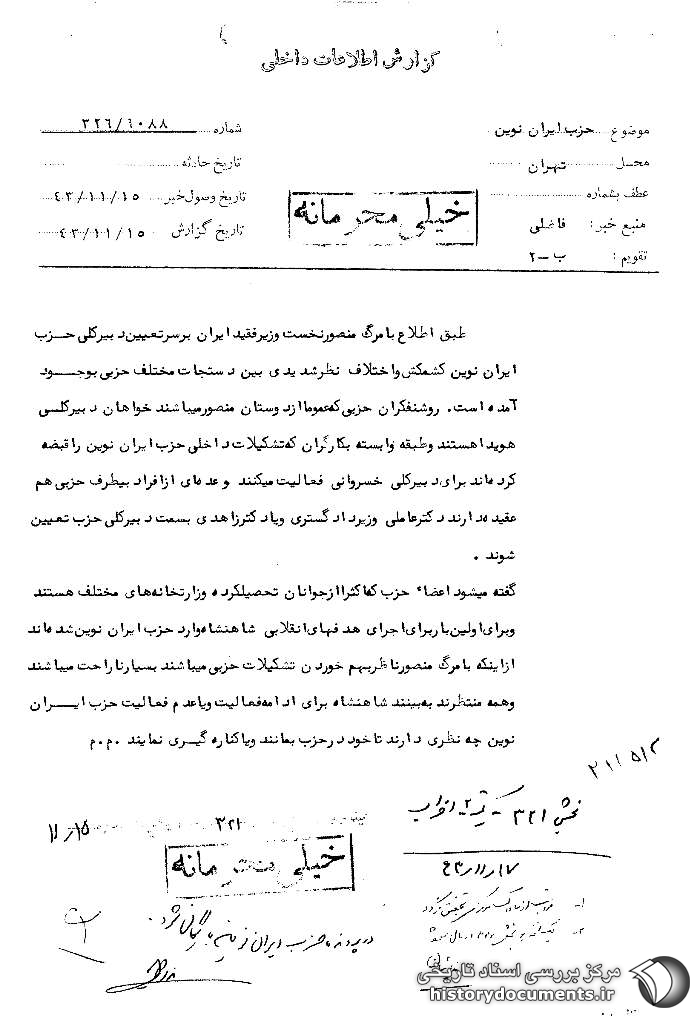 گزارش اطلاعات داخلی
موضوع حزب ایران نوین
شماره ۳۲۶/۶۰۸۸
محل تهران
تاریخ حادثه
عطف بشماره
تاریخ وصول خبر ۴۳/۱۱/۱۵
منبع خبر: فاضلی
تاریخ گزارش ۴۳/۱۱/۱۵
تقویم: ب-۲
خیلی محرمانه
طبق اطلاع با مرگ منصور نخست وزیر فقید ایران بر سر تعیین دبیرکلی حزب
ایران نوین کشمکش و اختلاف نظر شدیدی بین دستجات مختلف حزبی بوجود
آمده است. روشنفکران حزبی که عموما از دوستان منصور میباشند خواهان دبیرکلی
هویدا هستند و طبقه وابسته بکارگران که تشکیلات داخلی حزب ایران نوین را قبضه
کرده‌اند برای دبیرکلی خسروانی فعالیت میکنند و عده‌ای از افراد بیطرف حزبی هم
عقیده دارند دکتر عاملی وزیر دادگستری و یا دکتر زاهدی بسمت دبیرکلی حزب تعیین
شوند.
گفته میشود اعضاء حزب که اکثرا از جوانان تحصیلکرده وزارتخانه‌های مختلف هستند
و برای اولین بار برای اجرای هدفهای انقلابی شاهنشاه وارد حزب ایران نوین شده‌اند
از اینکه با مرگ منصور ناظر بهم خوردن تشکیلات حزبی میباشند بسیار ناراحت میباشند
و همه منتظرند به بینند شاهنشاه برای ادامه فعالیت و یا عدم فعالیت حزب ایران
نوین چه نظری دارند تا خود در حزب بمانند و یا کناره گیری نمایند .م.م
بخش ۳۲۱
۳۲۱
۱۱/۱۵
خیلی محرمانه
۴۳/۱۱/۱۷
در پرونده حزب ایران نوین بایگانی شود.
مرکز بررسی اسناد تاریخی
historydocuments.ir